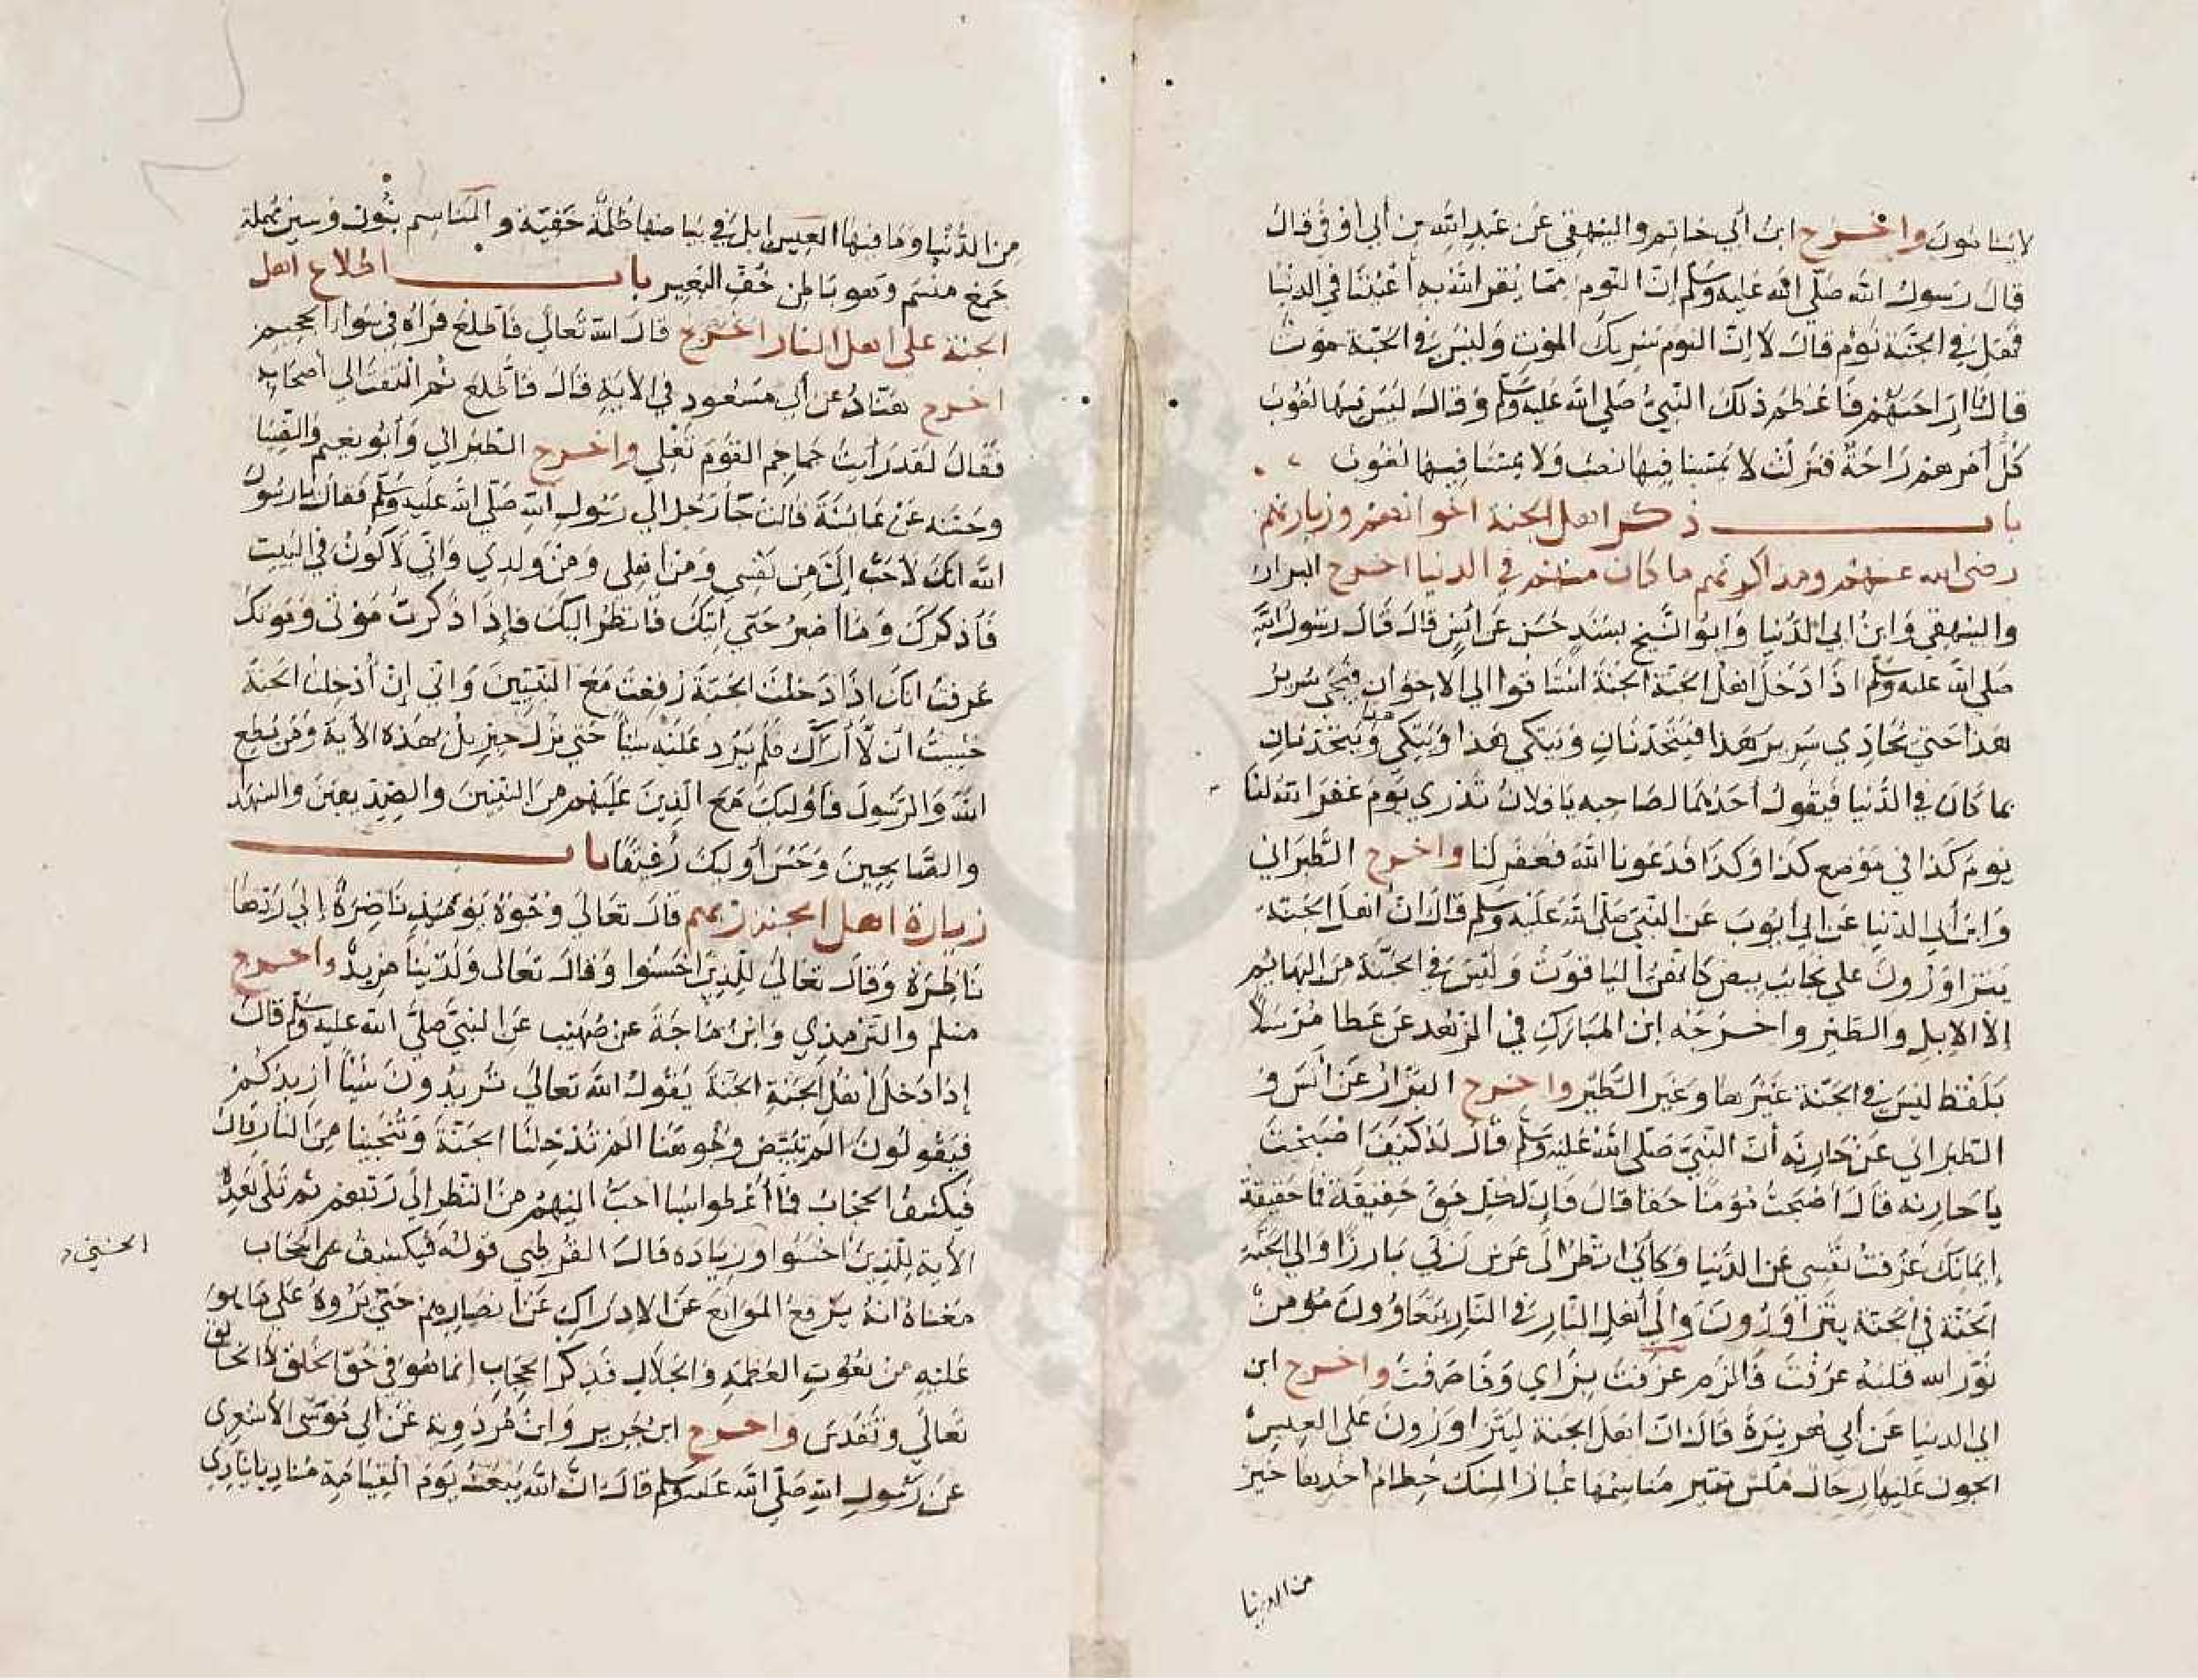 لا ينامون واخرج ابن أبي حاتم والبيهقي عن عبد الله بن أبي أوفى قال
قال رسول الله صلى الله عليه وسلم ان النوم مما يقر الله به أعيننا في الدنيا
فهل في الجنة نوم قال لا ان النوم شريك الموت وليس في الجنة موت
قال فما راحتهم فاعظم ذلك النبي صلى الله عليه وسلم وقال ليس فيها لغوب
كل أمرهم راحة فنزلت لا يمسنا فيها نصب ولا يمسنا فيها لغوب
باب ذكر اهل الجنة اخوانهم وزيارتهم
رضى الله عنهم ومذاكرتهم ما كان منهم في الدنيا اخرج البزار
والبيهقي وابن ابي الدنيا وابو الشيخ بسند حسن عن انس قال قال رسول الله
صلى الله عليه وسلم اذا دخل اهل الجنة الجنة اشتاقوا الى الاخوان فيجى سرير
هذا حتى يحاذي سرير هذا فيتحدثان ويتكي هذا ويتكي هذا ويتحدثان
بما كان في الدنيا فيقول أحدهما لصاحبه يا فلان تدري يوم غفر الله لنا
يوم كذا في موضع كذا وكذا فدعونا الله فغفر لنا واخرج الطبراني
وابن أبي الدنيا عن ابي أيوب عن النبي صلى الله عليه وسلم قال ان أهل الجنة
يتزاورون على نجايب بيض كانهن الياقوت وليس في الجنة من البهائم
إلا الابل والطير واخرجه ابن المبارك في الزهد عن عطا مرسلا
بلفظ ليس في الجنة غيرها وغير الطير واخرج البزار عن أنس و
الطبراني عن حارثه أن النبي صلى الله عليه وسلم قال له كيف اصبحت
يا حارثه قال أصبحت مؤمنا حقا قال فان لكل حق حقيقة فما حقيقة
إيمانك عزفت نفسي عن الدنيا وكأني انظر الى عرش ربي بارزا والى اهل
الجنة في الجنة يتزاورون والى أهل النار في النار يتعاوون مؤمن
نور الله قلبه عرفت فالزم واخرج ابن
ابي الدنيا عن أبي هريرة قال ان اهل الجنة ليتزاورون على العيس
الجون عليها رحال الميس تثير مناسمها غبار المسك خطام أحدها خير
من الدنيا
من الدنيا وما فيها العيس ابل في بياضها ظلمة خفية والمناسم بنون وسين مهملة
جمع منسم وهو باطن خف البعير باب اطلاع اهل
الجنة على اهل النار اخرج قال الله تعالى فاطلع فراه في سواء الجحيم
اخرج هناد عن أبي مسعود في الآية قال فاطلع ثم التفت الى أصحابه
فقال لقد رأيت جماجم القوم تغلي واخرج الطبراني وأبو نعيم والضيا
وحسنه عن عائشة قالت جا رجل الى رسول الله صلى الله عليه وسلم فقال يا رسول
الله انك لأحب إلي من نفسي ومن اهلى ومن ولدي واني لأكون في البيت
فأذكرك وما اصبر حتى آتيك فانظر اليك فإذا ذكرت موتى وموتك
عرفت انك اذا دخلت الجنة رفعت مع النبيين واني إن أدخلت الجنة
خشيت ان لا أراك فلم يرد عليه شيأ حتى نزل جبريل بهذه الآية ومن يطع
الله والرسول فأوليك مع الذين عليهم من النبيين والصديقين والشهدا
والصالحين وحسن أوليك رفيقا باب
زيارة اهل الجنة ربهم قال تعالى وجوه يومئذ ناضرة إلى ربها
ناظرة وقال تعالى للذين احسنوا وقال تعالى ولدينا مزيد واخرج
مسلم والترمذي وابن ماجة عن صهيب عن النبي صلى الله عليه وسلم قال
إذا دخل أهل الجنة الجنة يقول الله تعالى تريدون شيأ أزيدكم
فيقولون الم تبيض وجوهنا الم تدخلنا الجنة وتنجينا من النار قال
فيكشف الحجاب فما أعطوا شيا احب اليهم من النظر إلى ربهم ثم تلى هذه
الآية للذين احسنوا وزياده قال القرطبي قوله فيكشف عن الحجاب
الحسنى
معناه انه يرفع الموانع عن الادراك عن ابصارهم حتى يروه على ما هو
عليه من نعوت العظمة والجلال فذكر الحجاب انما هو في حق الخلق لا الخالق
تعالى وتقدس واخرج ابن جرير وابن مردويه عن أبي موسى الأشعري
عن رسول الله صلى الله عليه وسلم قال ان الله يبعث يوم القيامة مناديا ينادي